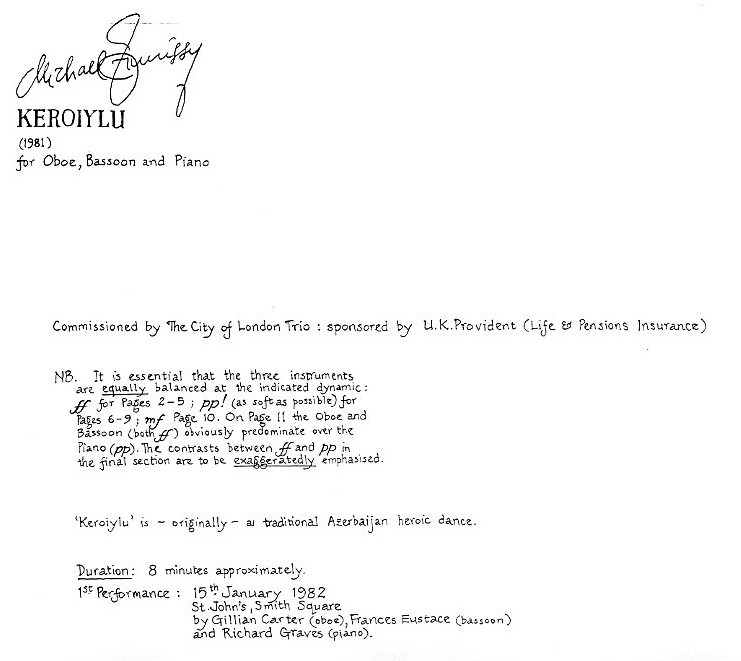 Michael Finnissy
KEROIYLU
(1981)
for Oboe, Bassoon and Piano
Commissioned by The City of London Trio : sponsored by U.K.Provident (Life & Pensions Insurance)
NB. It is essential that the three instruments
are equally balanced at the indicated dynamic :
ff for Pages 2-5 ; pp! (as soft as possible) for
Pages 6-9 ; mf Page 10. On Page 11 the Oboe and
Bassoon (both ff) obviously predominate over the
Piano (pp). The contrasts between ff and pp in
the final section are to be exaggeratedly emphasised.
'Keroiylu' is ~ originally ~ a traditional Azerbaijan heroic dance.
Duration: 8 minutes approximately.
1st Performance : 15th January 1982
St John's, Smith Square
by Gillian Carter (oboe), Frances Eustace (bassoon)
and Richard Graves (piano).